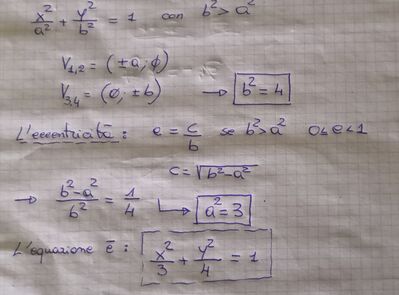 x²/a² + y²/b² = 1 con b² > a²
V₁,₂ = (±a; ϕ)
V₃,₄ = (ϕ, ±b) → b² = 4
L'eccentricità: e = c/b se b² > a² 0 ≤ e < 1
c = √(b² - a²)
→ (b² - a²)/b² = 1/4 → a² = 3
L'equazione è: x²/3 + y²/4 = 1